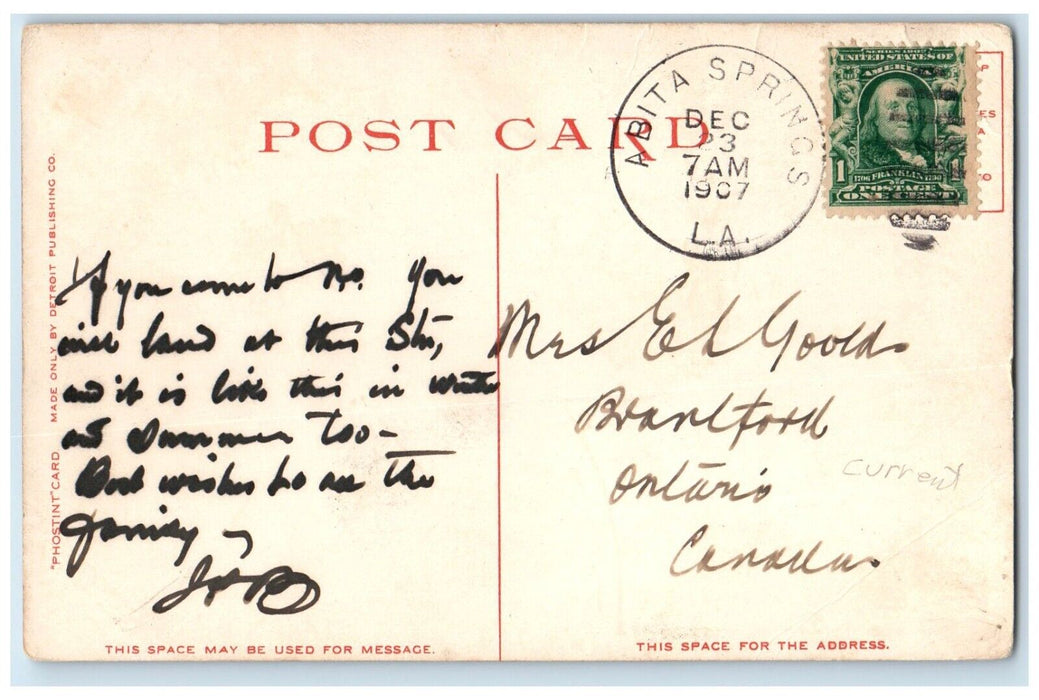 POST CARD
ABITA SPRINGS
DEC
23
7AM
1907
L.A.
SERIES 1902
UNITED STATES OF
AMERICA
1
1706 FRANKLIN 1790
POSTAGE
ONE CENT
"PHOSTINT" CARD MADE ONLY BY DETROIT PUBLISHING CO.
If you come to N.O. you
will land at this Stn,
and it is like this in winter
and summer too -
Best wishes to all the
family -
Mrs E L Goold
Brantford
Ontario
Canada
current
THIS SPACE MAY BE USED FOR MESSAGE.
THIS SPACE FOR THE ADDRESS.